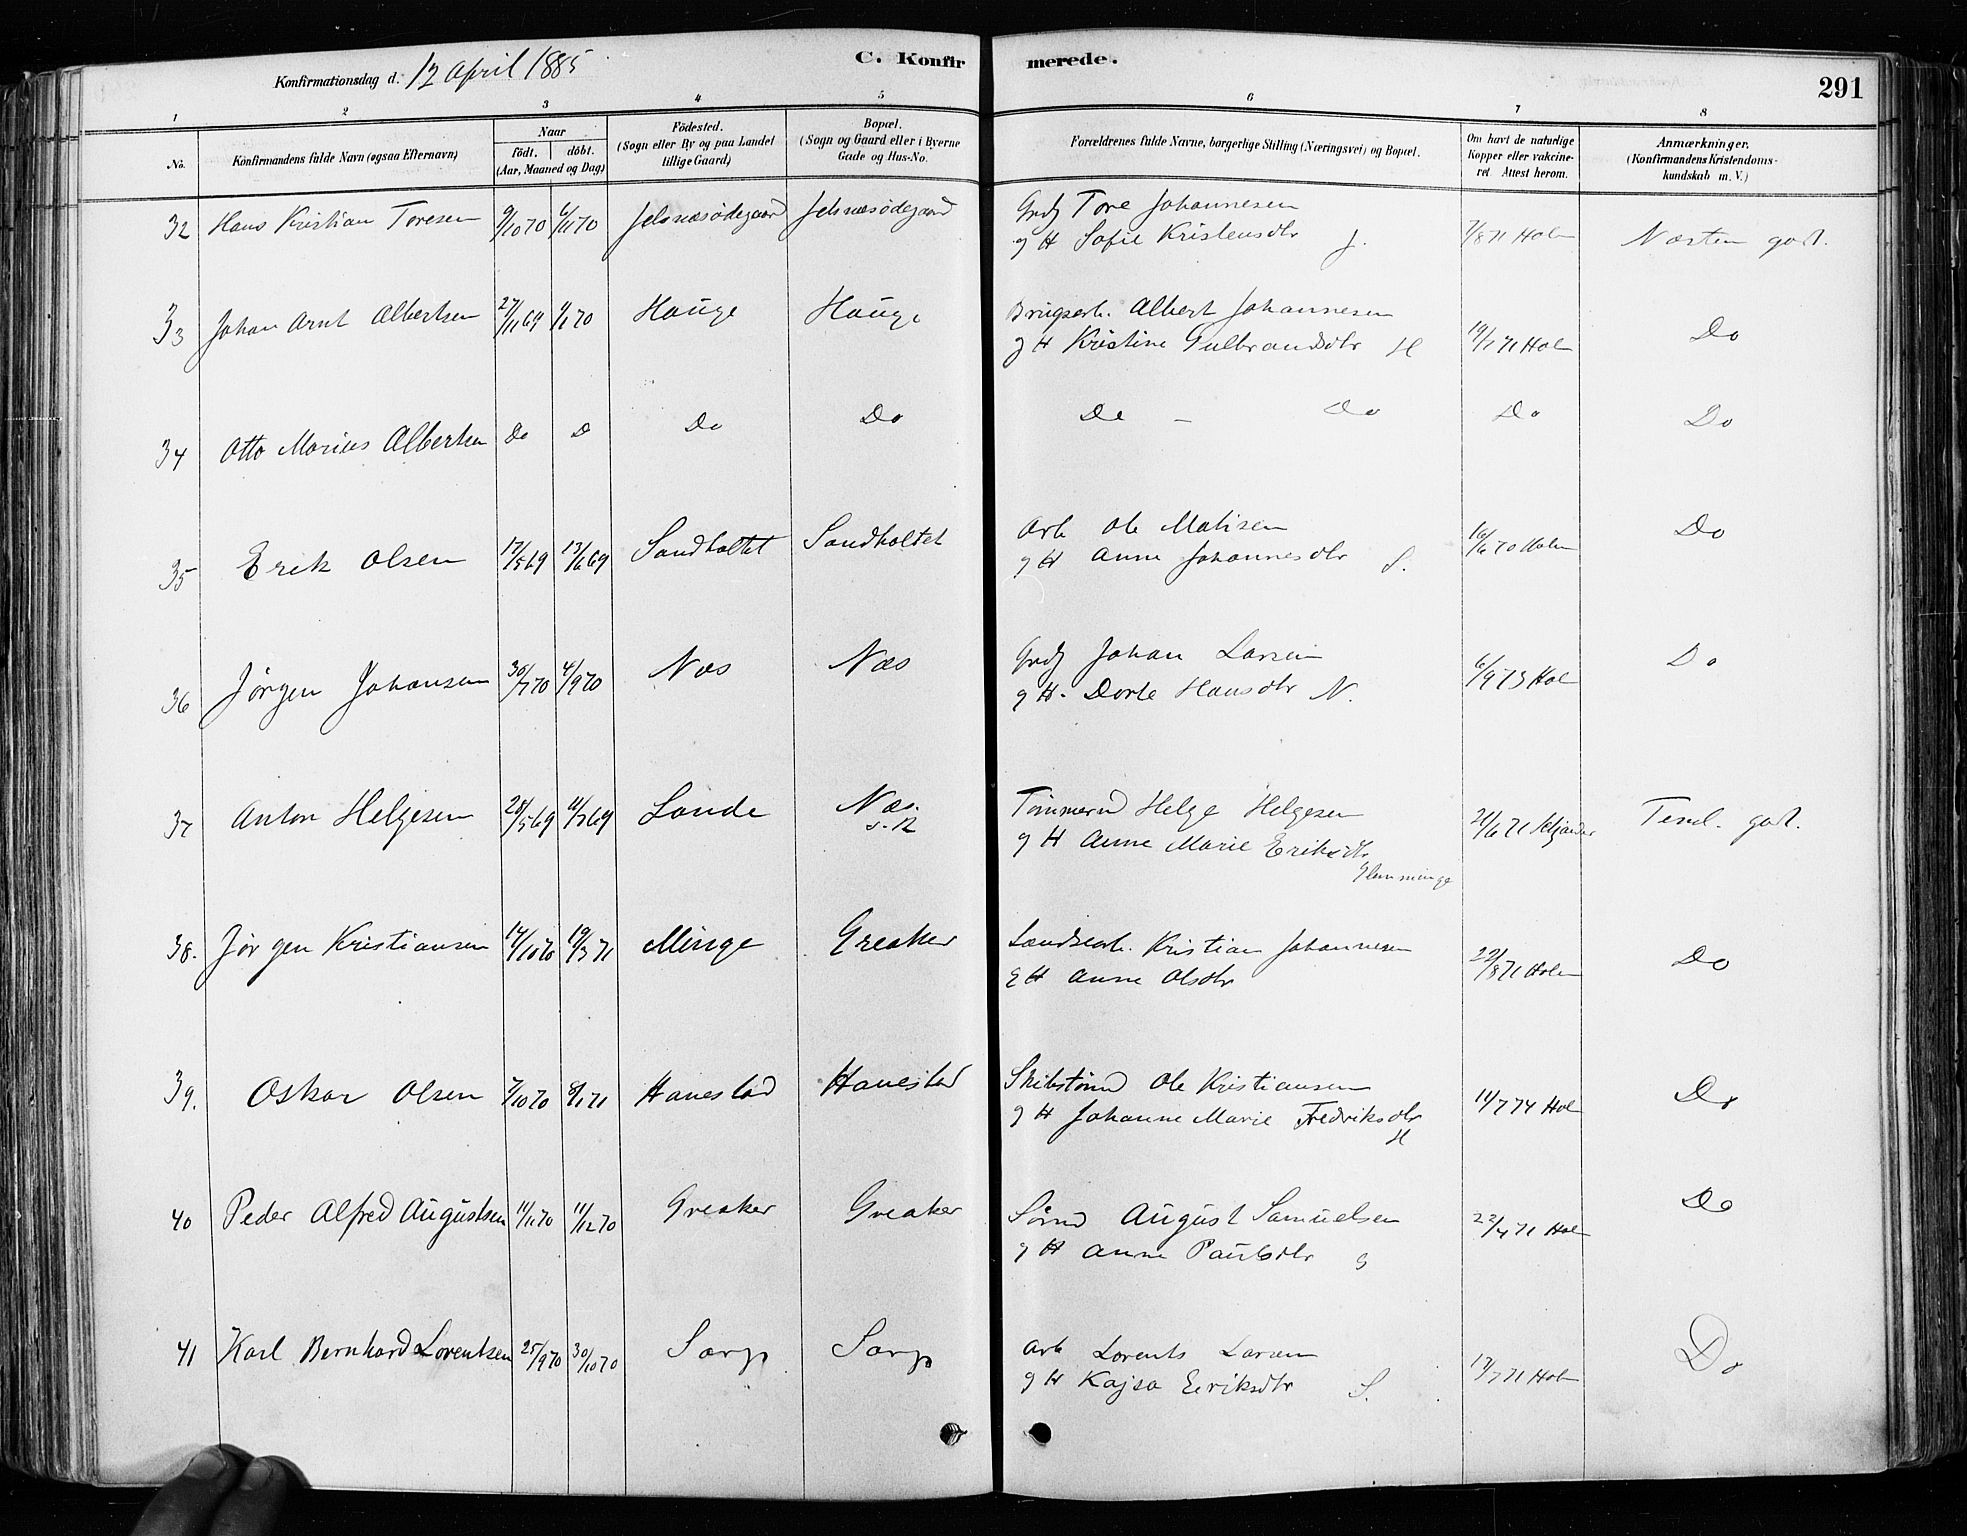 Konfirmationsdag d. 12 April 1885
C. Konfirmerede.
291
1 2 3 4 5 6 7 8
No.
Konfirmandens fulde Navn (ogsaa Efternavn)
Naar
födt. döbt.
(Aar, Maaned og Dag)
Födested.
(Sogn eller By og paa Landet
tillige Gaard)
Bopæl.
(Sogn og Gaard eller i Byerne
Gade og Hus-No.
Forældrenes fulde Navne, borgerlige Stilling (Næringsvei) og Bopæl.
Om havt de naturlige
Kopper eller vakcine-
ret Attest herom.
Anmærkninger.
(Konfirmandens Kristendoms-
kundskab m. V.)
32 Hans Kristian Toresen 9/10 70 6/11 70 Jelsnæsødegaard Jelsnæsødegaard Grdj Tore Johannesen
g H Sofie Kristensdtr J. 7/8 71 Holm Næsten godt.
33 Johan Arnt Albertsen 27/11 69 1/1 70 Hauge Hauge Brugserb. Albert Johannesen
g H Kristine Gulbrandsdtr H 19/1 71 Holm Do
34 Otto Marius Albertsen Do D Do Do Do – Do Do Do
35 Erik Olsen 17/5 69 13/6 69 Sandholtet Sandholtet Arb Ole Matisen
g H Anne Johannesdtr S. 16/6 70 Holm Do
36 Jørgen Johansen 30/7 70 4/9 70 Næs Næs Grdj Johan Larsen
g H. Dorte Hansdtr N. 6/9 73 Hol Do
37 Anton Helgesen 28/5 69 11/7 69 Lande Næs. Tømmermd Helge Helgesen
g H Anne Marie Eriksdtr
Glemminge 21/6 71 Temel. godt.
38. Jørgen Kristiansen 14/10 70 19/3 71 Minge Greaker Landsearb. Kristian Johannesen
g H Anne Olsdtr 22/8 71 Holm Do
39. Oskar Olsen 7/10 70 8/1 71 Hanestad Hanestad Skibstømd Ole Kristiansen
g H Johanne Marie Fredriksdtr
H 14/7 74 Hol Do
40 Peder Alfred Augustsen 14/11 70 11/12 70 Greaker Greaker Sømd August Samuelsen
g H Anne Paulsdtr G 22/4 71 Hol Do
41 Karl Bernhard Lorentsen 25/9 70 30/10 70 Sarp Sarp Arb Lorents Larsen
g H Kajsa Eeriksdtr S. 17/7 71 Holm Do